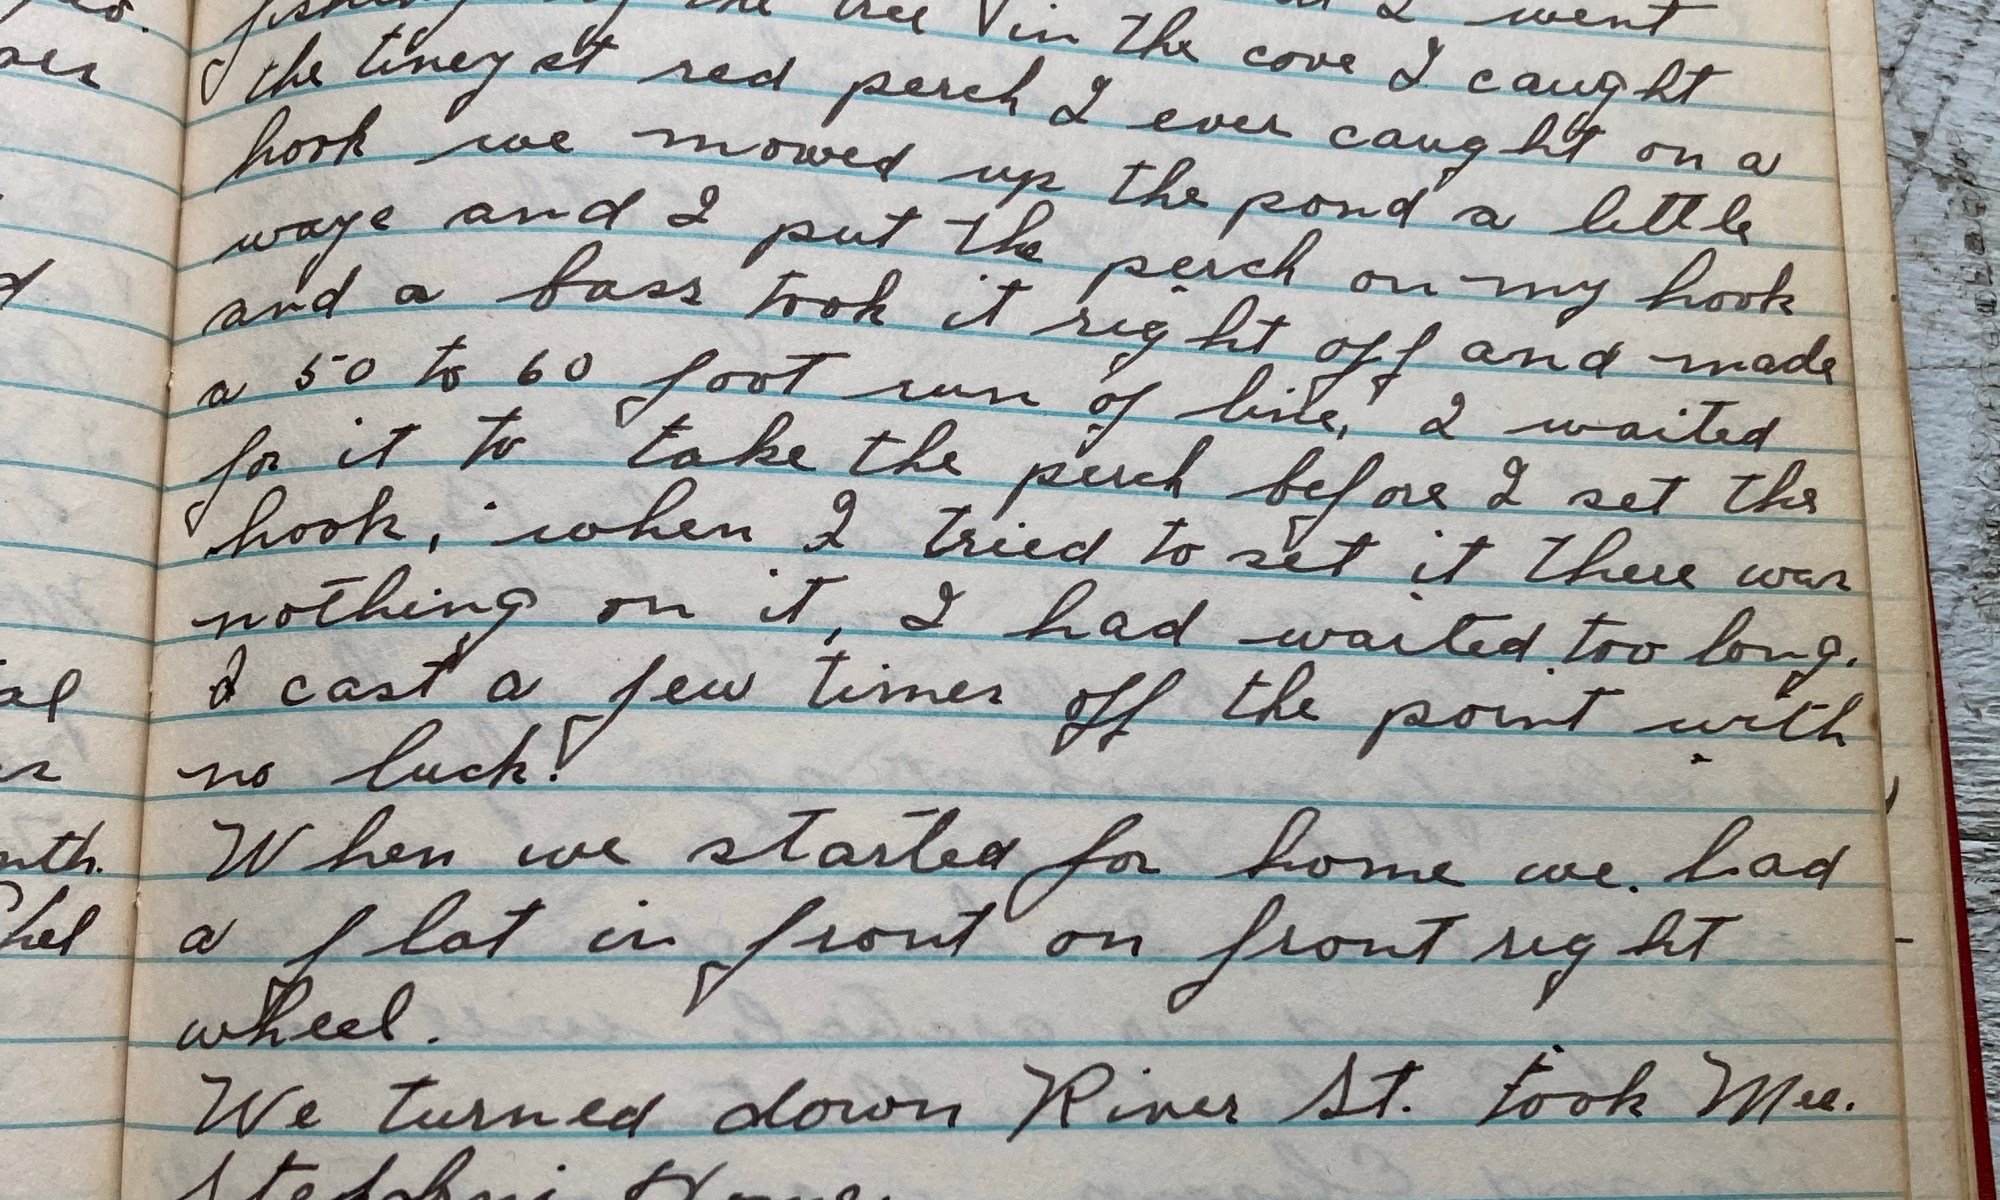 fishing by the tree in the cove I caught
the tineyst red perch I ever caught on a
hook we mowed up the pond a little
waye and I put the perch on my hook
and a bass took it right off and made
a 50 to 60 foot run of line, I waited
for it to take the perch before I set the
hook, when I tried to set it there was
nothing on it, I had waited too long.
I cast a few times off the point with
no luck.
When we started for home we had
a flat in front on front right
wheel.
We turned down River St. took
Home